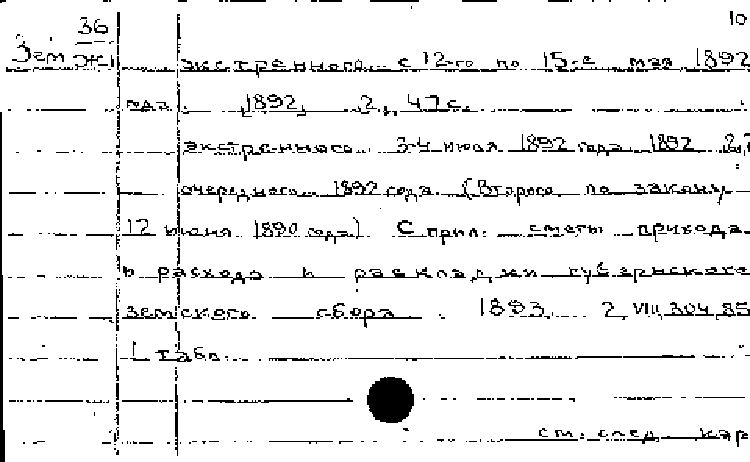 36 10
Зем ж экстренного с 12-го по 15-е мая 1892
года. 1892, 2, 47 с.
экстренного 3-4 июля 1892 года 1892 2,
очередного 1892 года. (Второго по закону
12 июня 1890 года) С прил: сметы прихода
и расхода и раскладки губернского
земского сбора. 1893. 2, VIII, 304, 85
1 табл.
см. след. кар